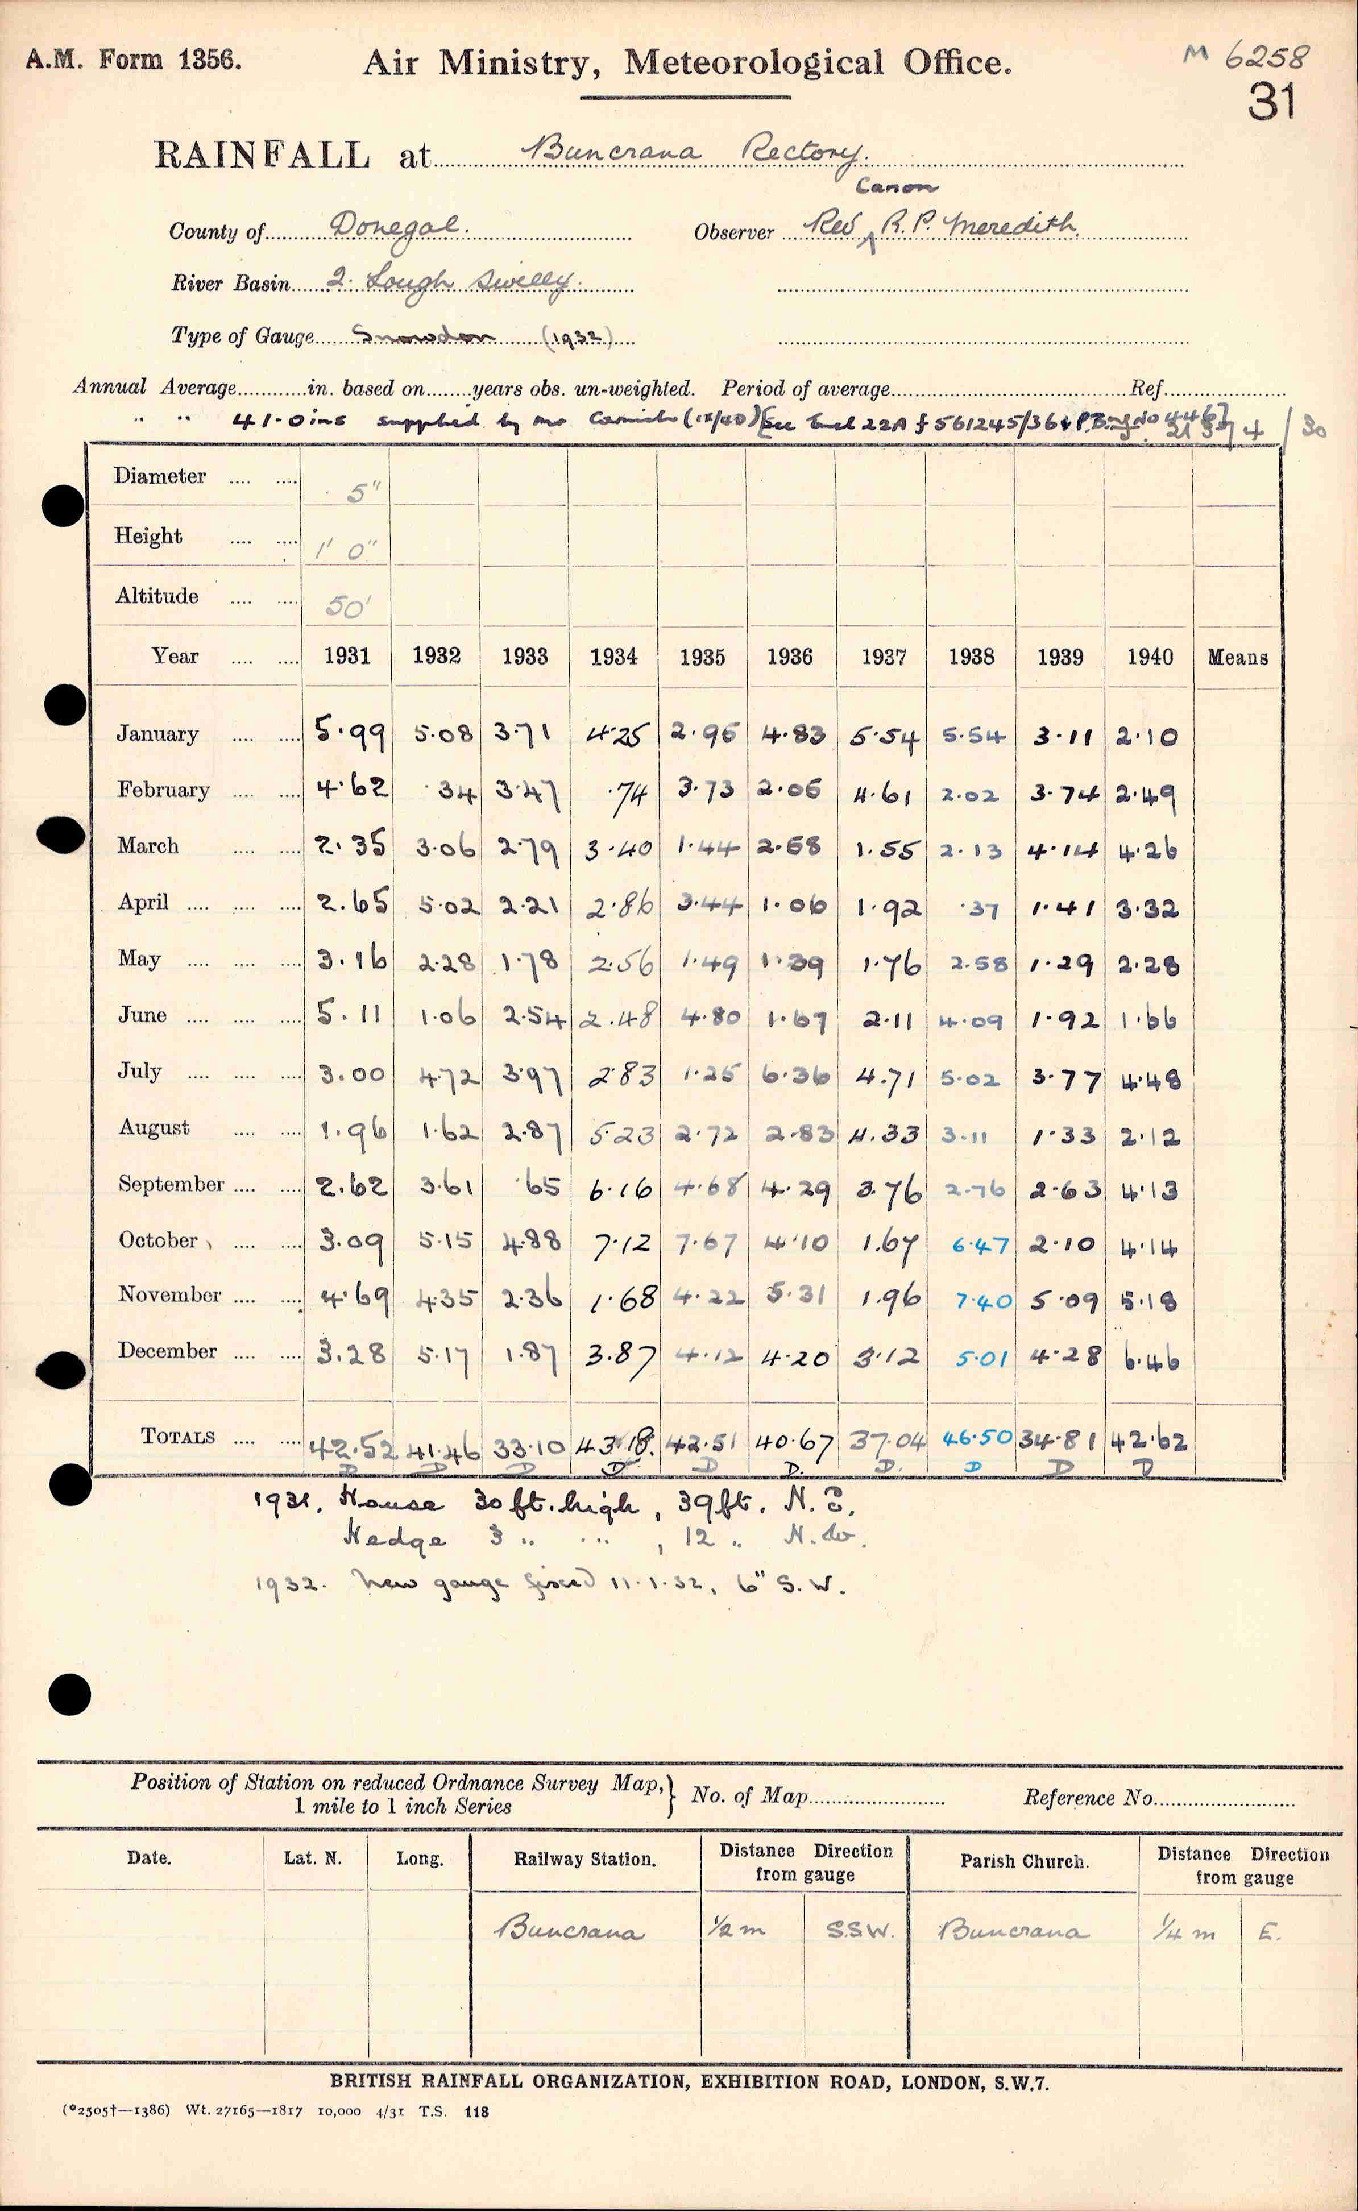 A.M. Form 1356. Air Ministry, Meteorological Office. M 6258
31
RAINFALL at Buncrana Rectory.
Canon
County of Donegal. Observer Rev ^ R.P. Meredith.
River Basin 2. Lough Swilly.
Type of Gauge Snowdon (1932)
Annual Average in. based on years obs. un-weighted. Period of average Ref
" " 41.0 ins supplied by Mr (IX/40) [See 22A f 561245/36 & 4 / 30
Diameter 5"
Height 1' 0"
Altitude 50'
Year 1931 1932 1933 1934 1935 1936 1937 1938 1939 1940 Means
January 5.99 5.08 3.71 4.25 2.95 4.83 5.54 5.54 3.11 2.10
February 4.62 .34 3.47 .74 3.73 2.05 4.61 2.02 3.74 2.49
March 2.35 3.06 2.79 3.40 1.44 2.58 1.55 2.13 4.14 4.26
April 2.65 5.02 2.21 2.86 3.44 1.06 1.92 .37 1.41 3.32
May 3.16 2.28 1.78 2.56 1.49 1.39 1.76 2.58 1.29 2.28
June 5.11 1.06 2.54 2.48 4.80 1.67 2.11 4.09 1.92 1.66
July 3.00 4.72 3.97 2.83 1.25 6.36 4.71 5.02 3.77 4.48
August 1.96 1.62 2.87 5.23 2.72 2.83 4.33 3.11 1.33 2.12
September 2.62 3.61 .65 6.16 4.68 4.29 3.76 2.76 2.63 4.13
October 3.09 5.15 4.88 7.12 7.67 4.10 1.67 6.47 2.10 4.14
November 4.69 4.35 2.36 1.68 4.22 5.31 1.96 7.40 5.09 5.18
December 3.28 5.17 1.87 3.87 4.12 4.20 3.12 5.01 4.28 6.46
TOTALS 42.52 41.46 33.10 43.18. 42.51 40.67 37.04 46.50 34.81 42.62
D D D D D D. D. D D D
1931. House 30 ft. high, 39 ft. N.E.
Hedge 3 " " , 12 " N.W.
1932. New gauge fixed 11.1.32, 6" S.W.
Position of Station on reduced Ordnance Survey Map,} No. of Map Reference No.
1 mile to 1 inch Series
Date. Lat. N. Long. Railway Station. Distance Direction from gauge Parish Church. Distance Direction from gauge
Buncrana 1/2 m S.S.W. Buncrana 1/4 m E.
BRITISH RAINFALL ORGANIZATION, EXHIBITION ROAD, LONDON, S.W.7.
(*2505†—1386) Wt. 27165—1817 10,000 4/31 T.S. 118